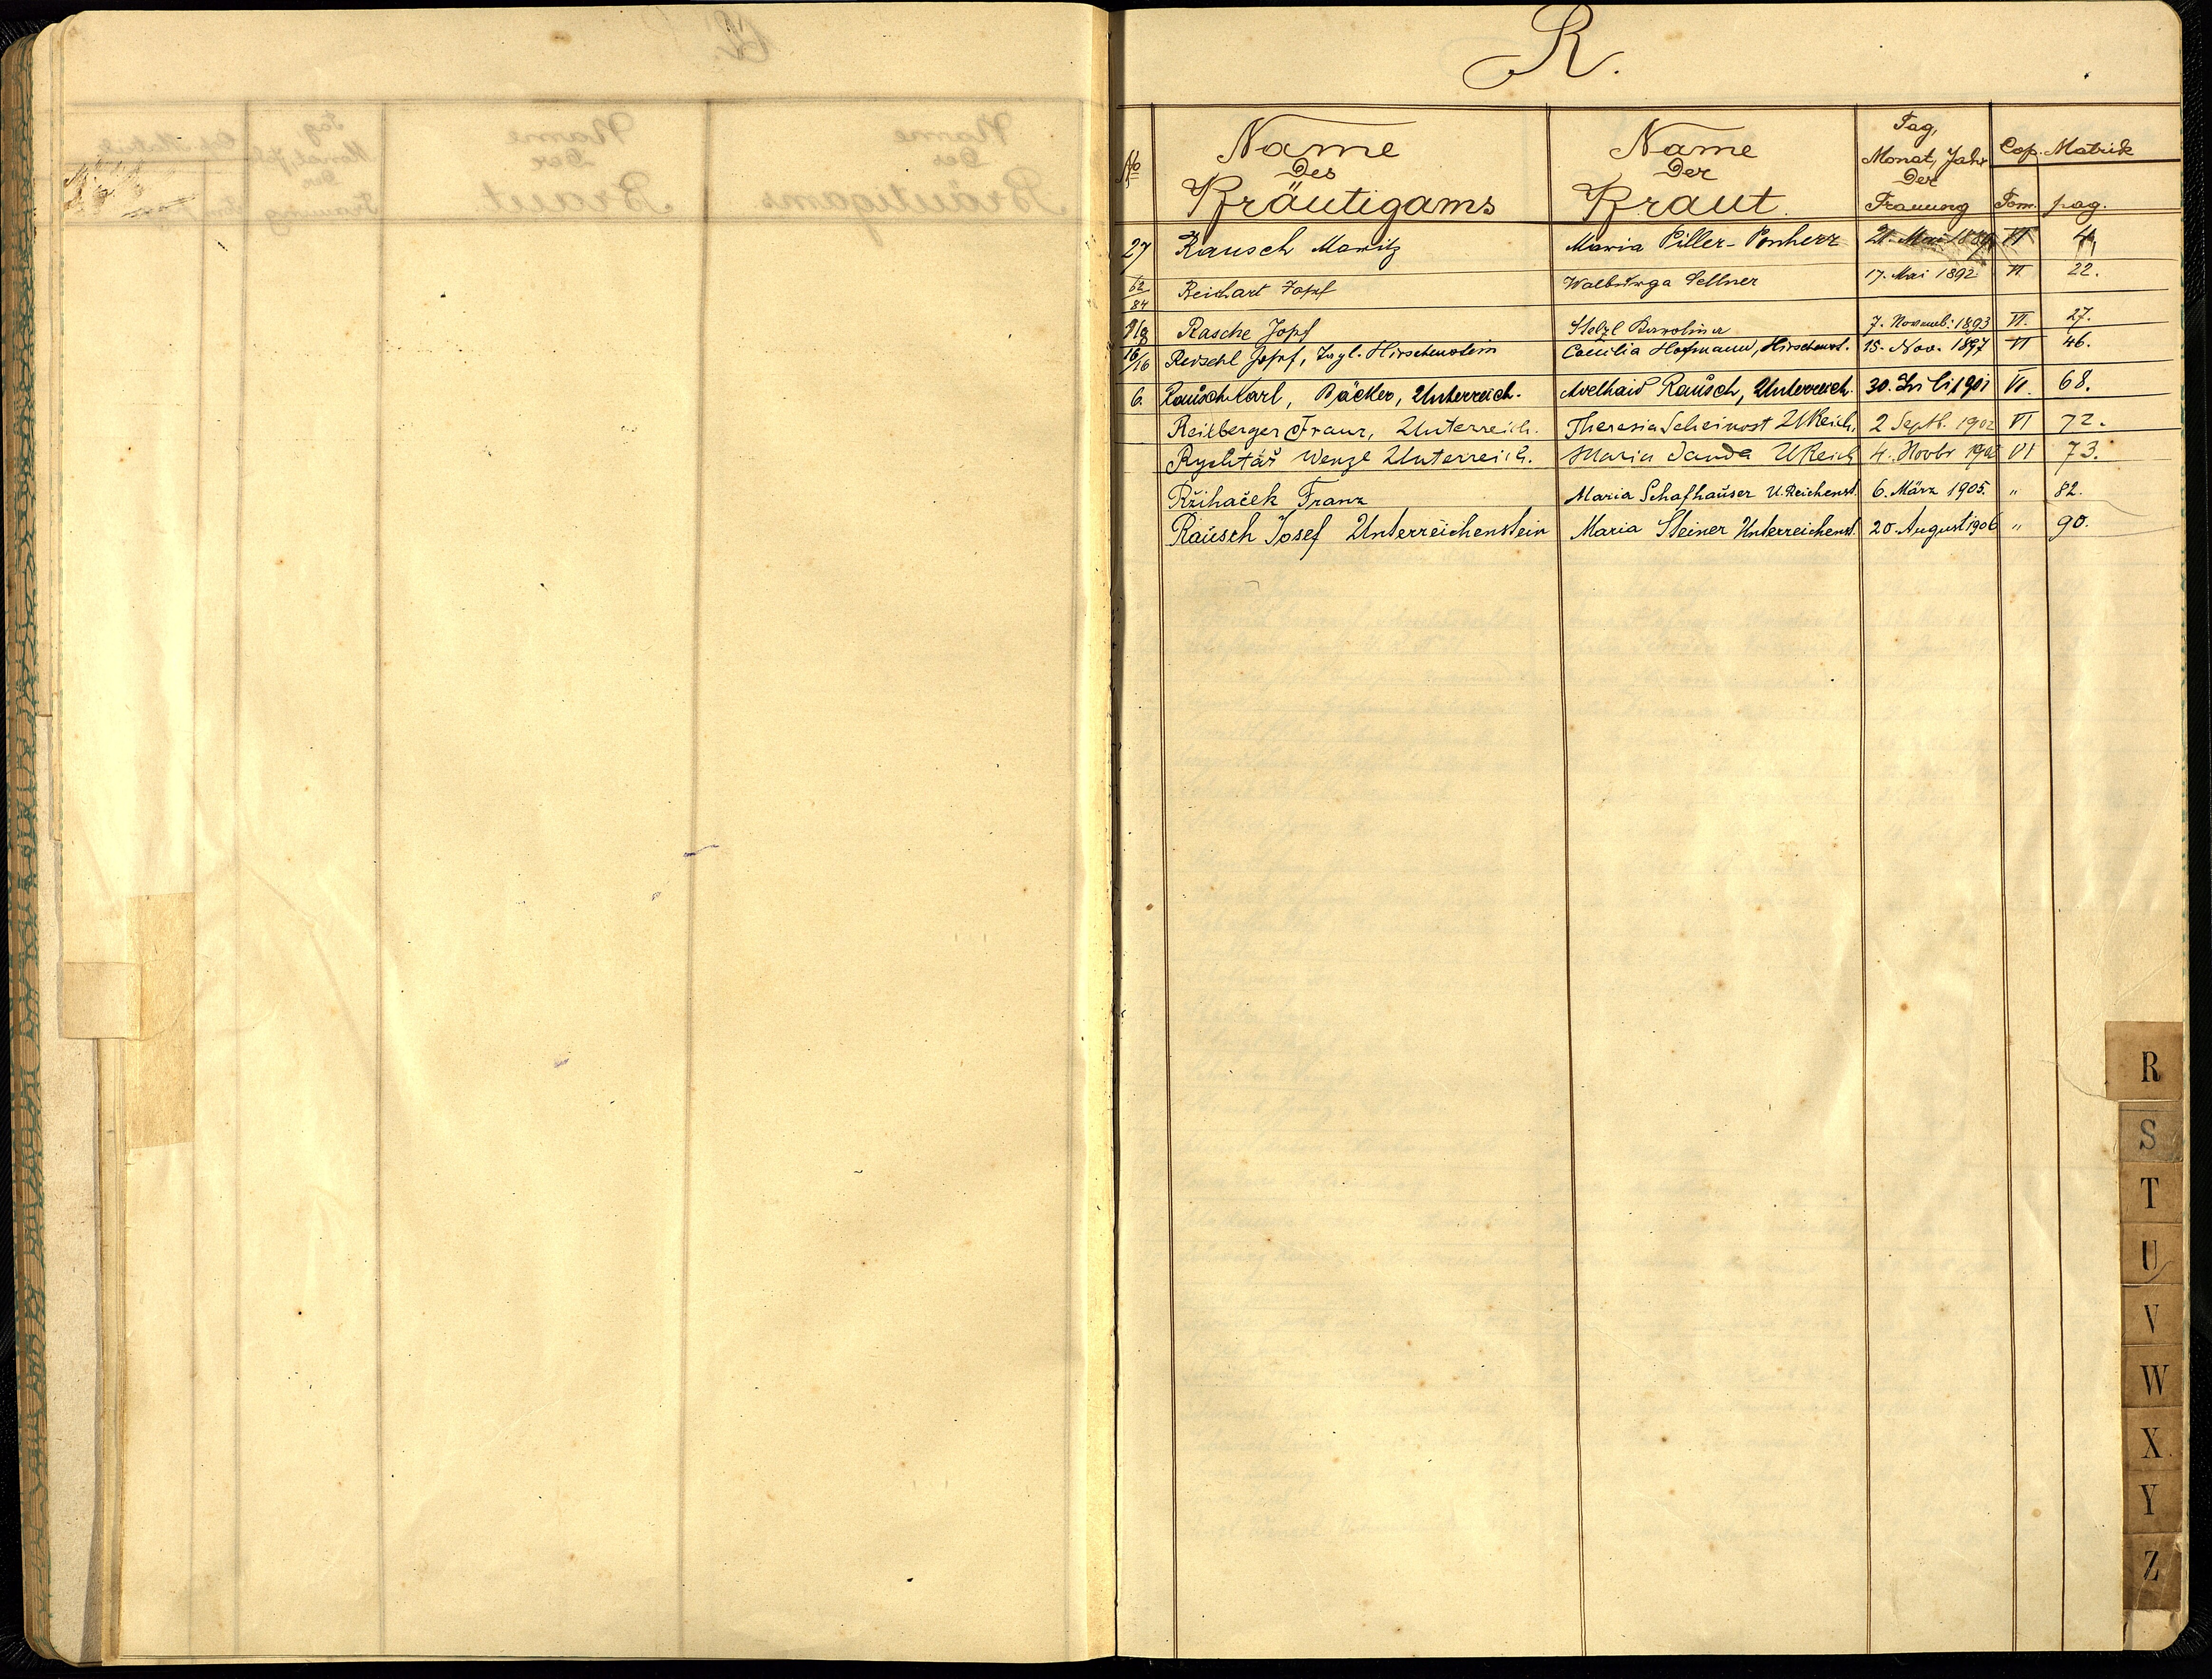 R.
No Name des Bräutigams Name der Braut Tag, Monat, Jahr der Trauung Cop. Matrik Tom. pag.
27 Rausch Moritz Maria Piller-Ponherr 21. Mai 1889 VI 4
62/84 Reichart Josef Walburga Sellner 17. Mai 1892 VI 22.
Rasche Josef Stelzl Karolina 7. Novemb: 1893 VI. 27.
16/16 Josef, Tagl. Hirschenstein Caecilia Hofmann, Hirschenst. 15. Nov. 1897 VI 46.
6. Rausch Karl, Bäcker, Unterreich. Adelhaid Rausch, Unterreich. 30. Juli 1901 VI. 68.
Reilberger Franz, Unterreich. Theresia Scheinost UReich. 2 Septb. 1902 VI 72.
Rychtář Wenzl Unterreich. Maria Janda UReich 4. Novbr 1902 VI 73.
Ržihaček Franz Maria Schafhauser U.Reichenst. 6. März 1905. " 82.
Rausch Josef Unterreichenstein Maria Steiner Unterreichenst. 20. August 1906 " 90.
R
S
T
U
V
W
X
Y
Z